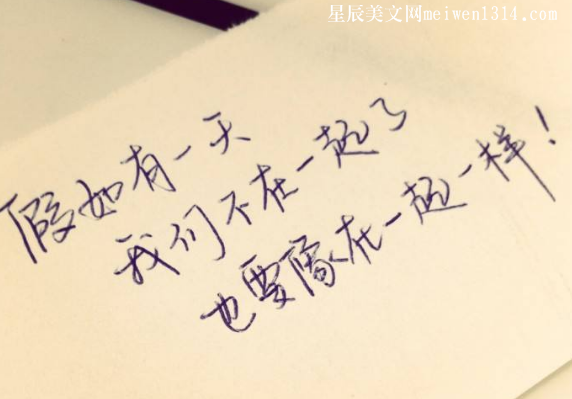 星辰美文网meiwen1314.com
假如有一天
我们不在一起了
也要像在一起一样！